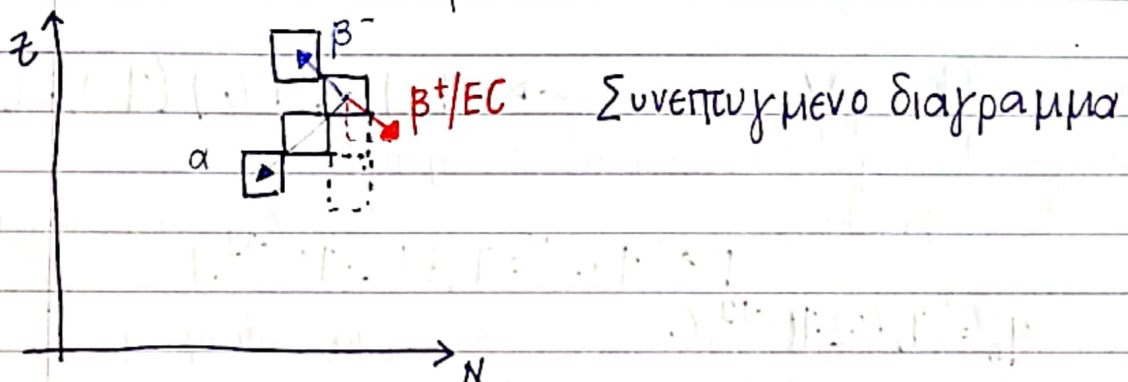 Z
β⁻
β⁺/EC
Συνεπτυγμενο διαγραμμα
α
N